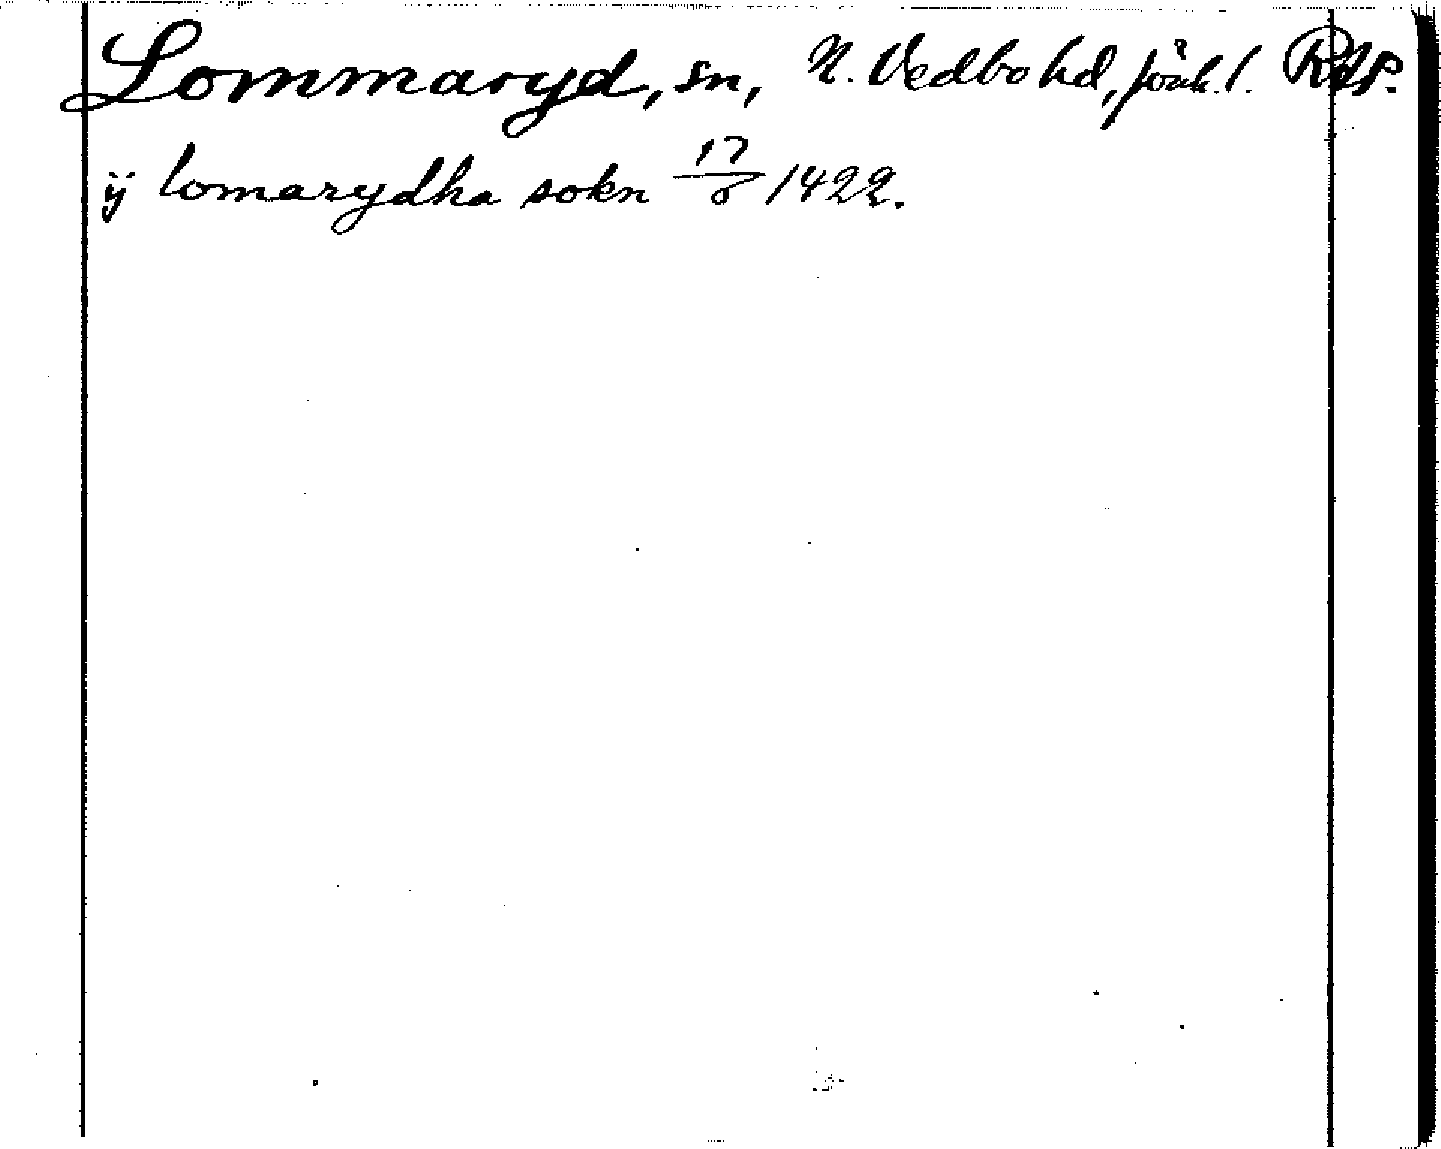 Lommaryd, sn, N. Vedbo hd, Jönk. l. RAP.
ÿ lomarydha sokn 17/8 1422.